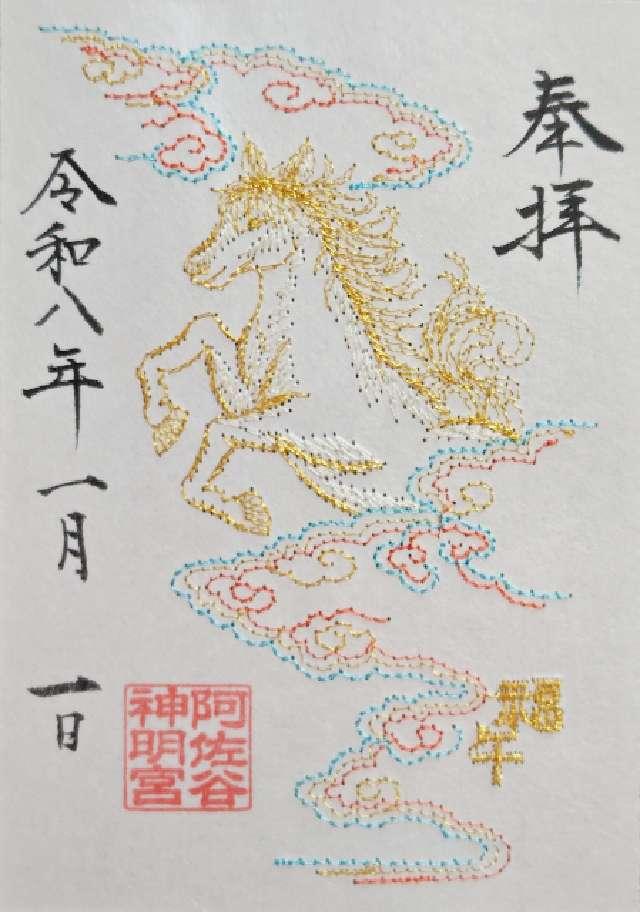 奉拝
令和八年一月一日
阿佐谷
神明宮
午